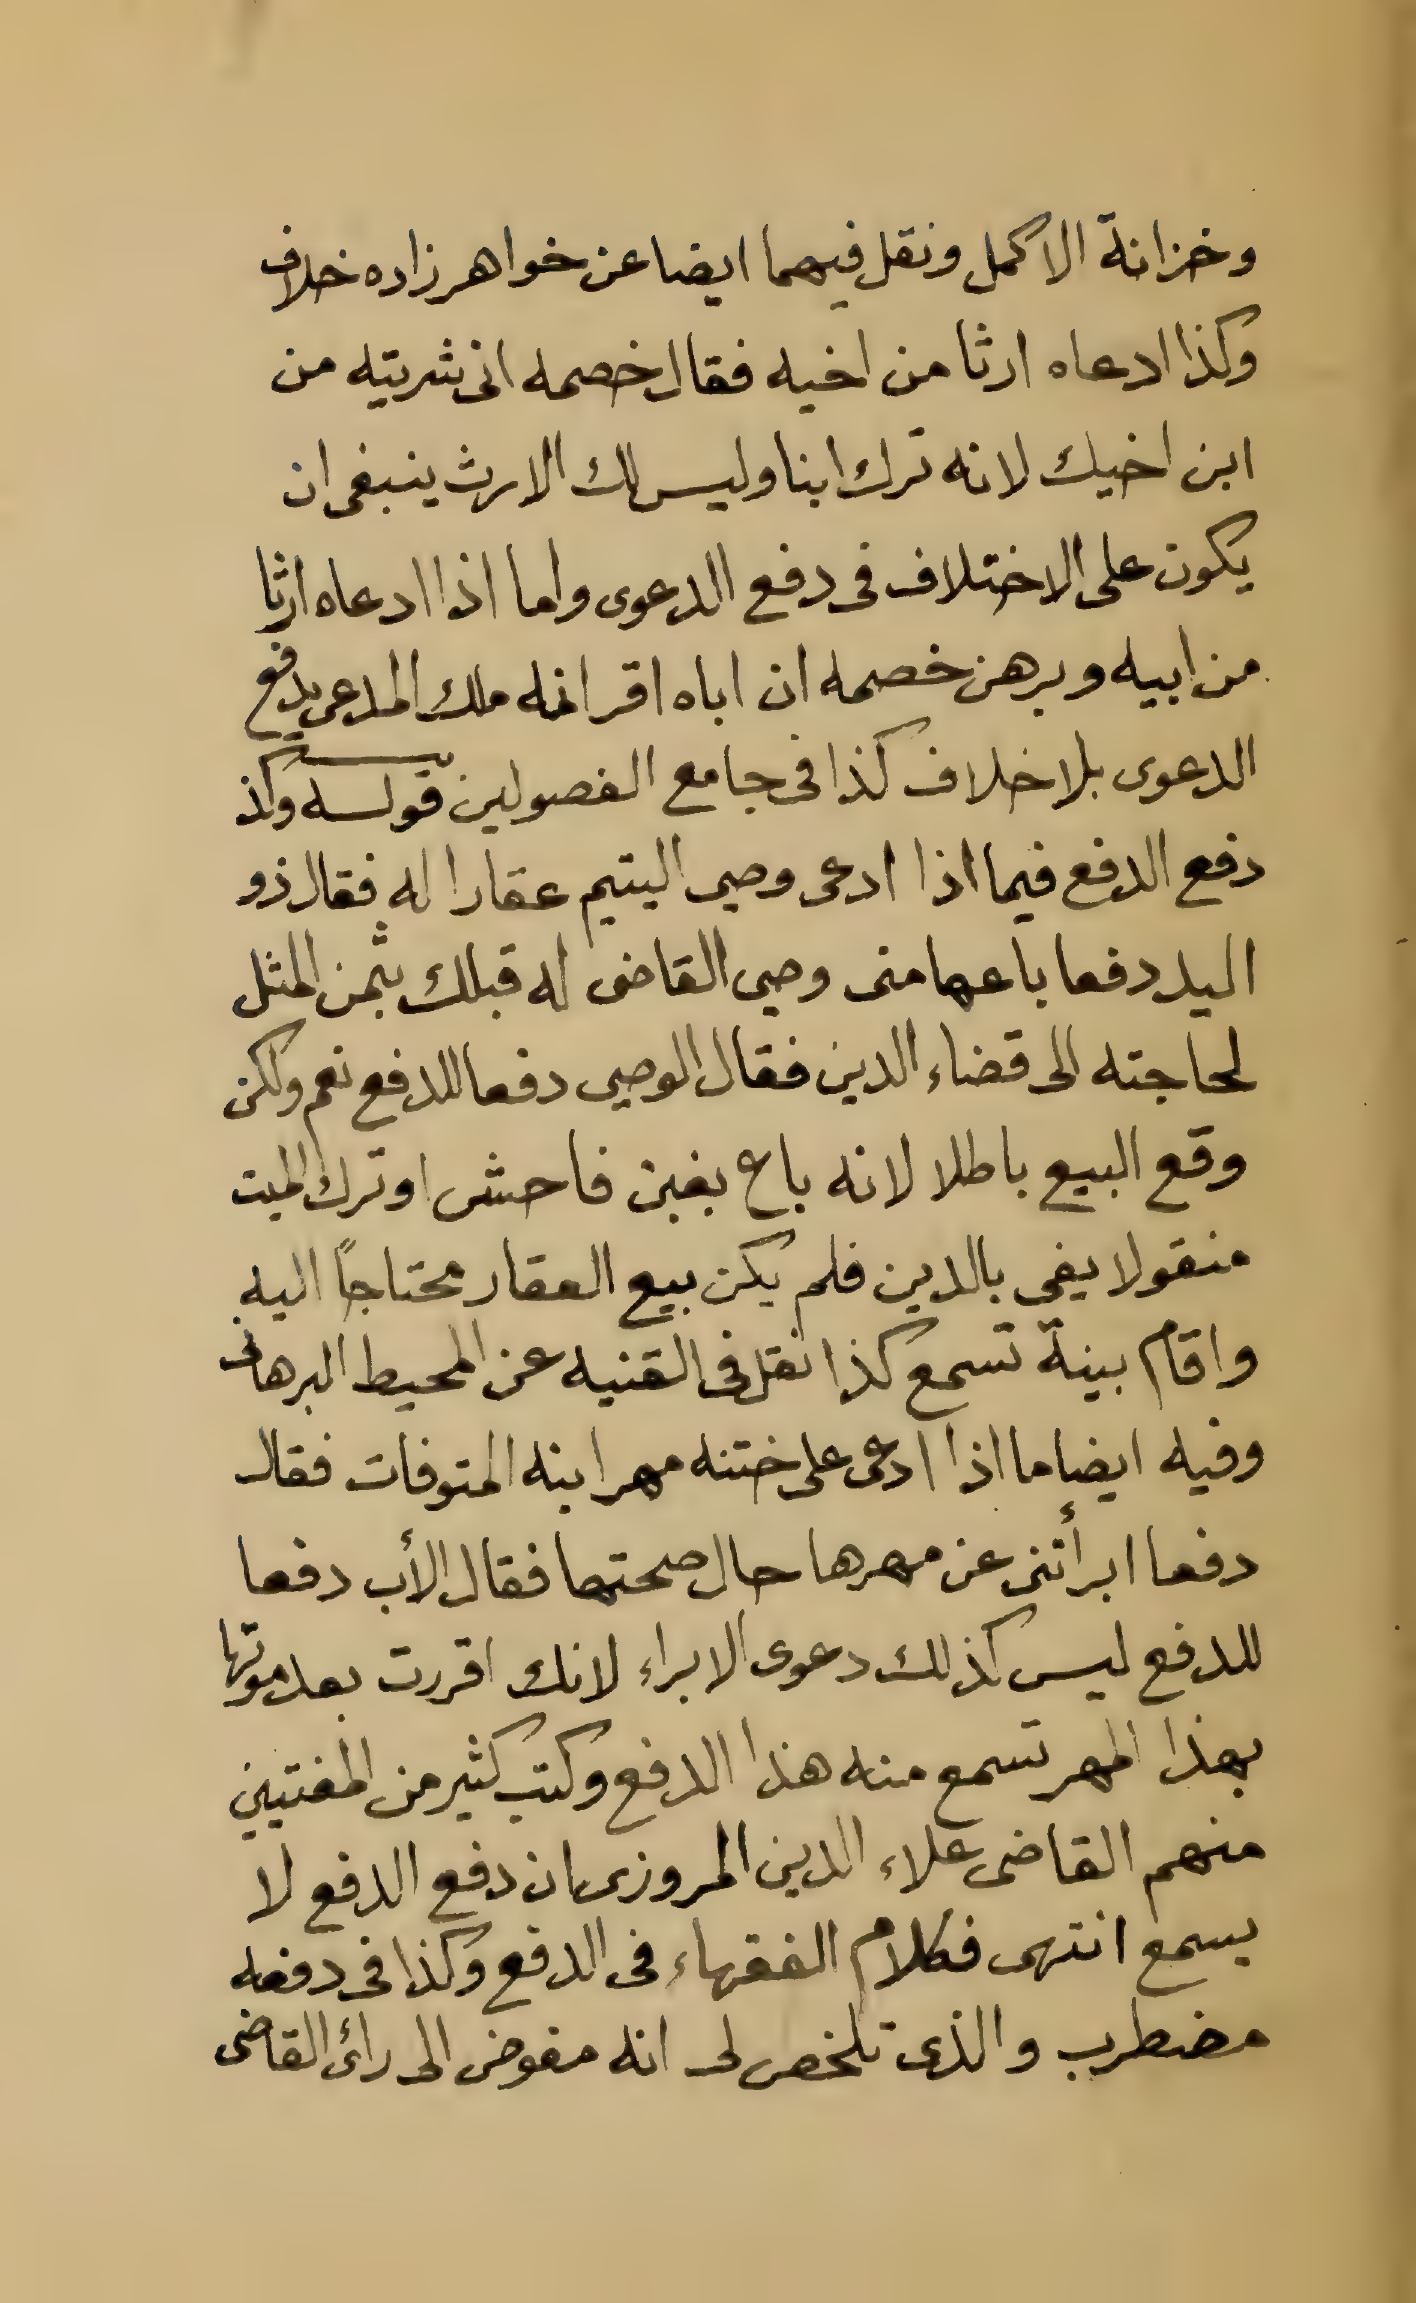 وخزانة الاكمل ونقل فيهما ايضا عن خواهر زاده خلاف
وكذا ادعاه ارثا من اخيه فقال خصمه انى شريته من
ابن اخيك لانه ترك ابنا وليس لك الارث ينبغى ان
يكون على الاختلاف فى دفع الدعوى واما اذا ادعاه ارثا
من ابيه وبرهن خصمه ان اباه اقر انه ملك المدعى يدفع
الدعوى بلا خلاف كذا فى جامع الفصولين قوله وكذ
دفع الدفع فيما اذا ادعى وصى اليتيم عقارا له فقال ذو
اليد دفعا باعها منى وصى القاضى له قبلك بثمن المثل
لحاجته الى قضاء الدين فقال الوصى دفعا للدفع نعم ولكن
وقع البيع باطلا لانه باع بغبن فاحش او ترك الميت
منقولا يفى بالدين فلم يكن بيع العقار محتاجاً اليه
واقام بينة تسمع كذا نقل فى القنيه عن المحيط البرهانى
وفيه ايضا ما اذا ادعى على ختنه مهر ابنه المتوفات فقال
دفعا ابرأتنى عن مهرها حال صحتها فقال الأب دفعا
للدفع ليس كذلك دعوى الابراء لانك اقررت بعد موتها
بهذا المهر تسمع منه هذا الدفع وكتب كثير من المفتيين
منهم القاضى علاء الدين المروزى ان دفع الدفع لا
يسمع انتهى فكلام الفقهاء فى الدفع وكذا فى دفعه
مضطرب والذى تلخص لى انه مفوض الى رائ القاضى